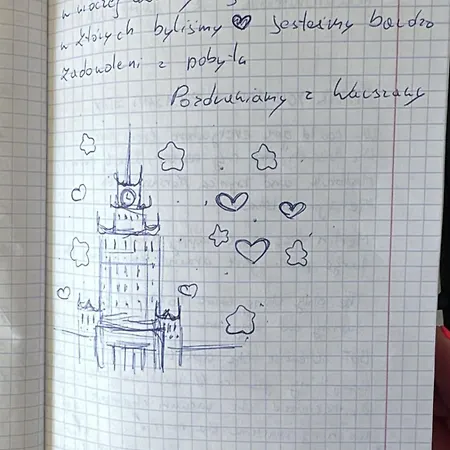 w których byliśmy jesteśmy bardzo
zadowoleni z pobytu
Pozdrawiamy z Warszawy